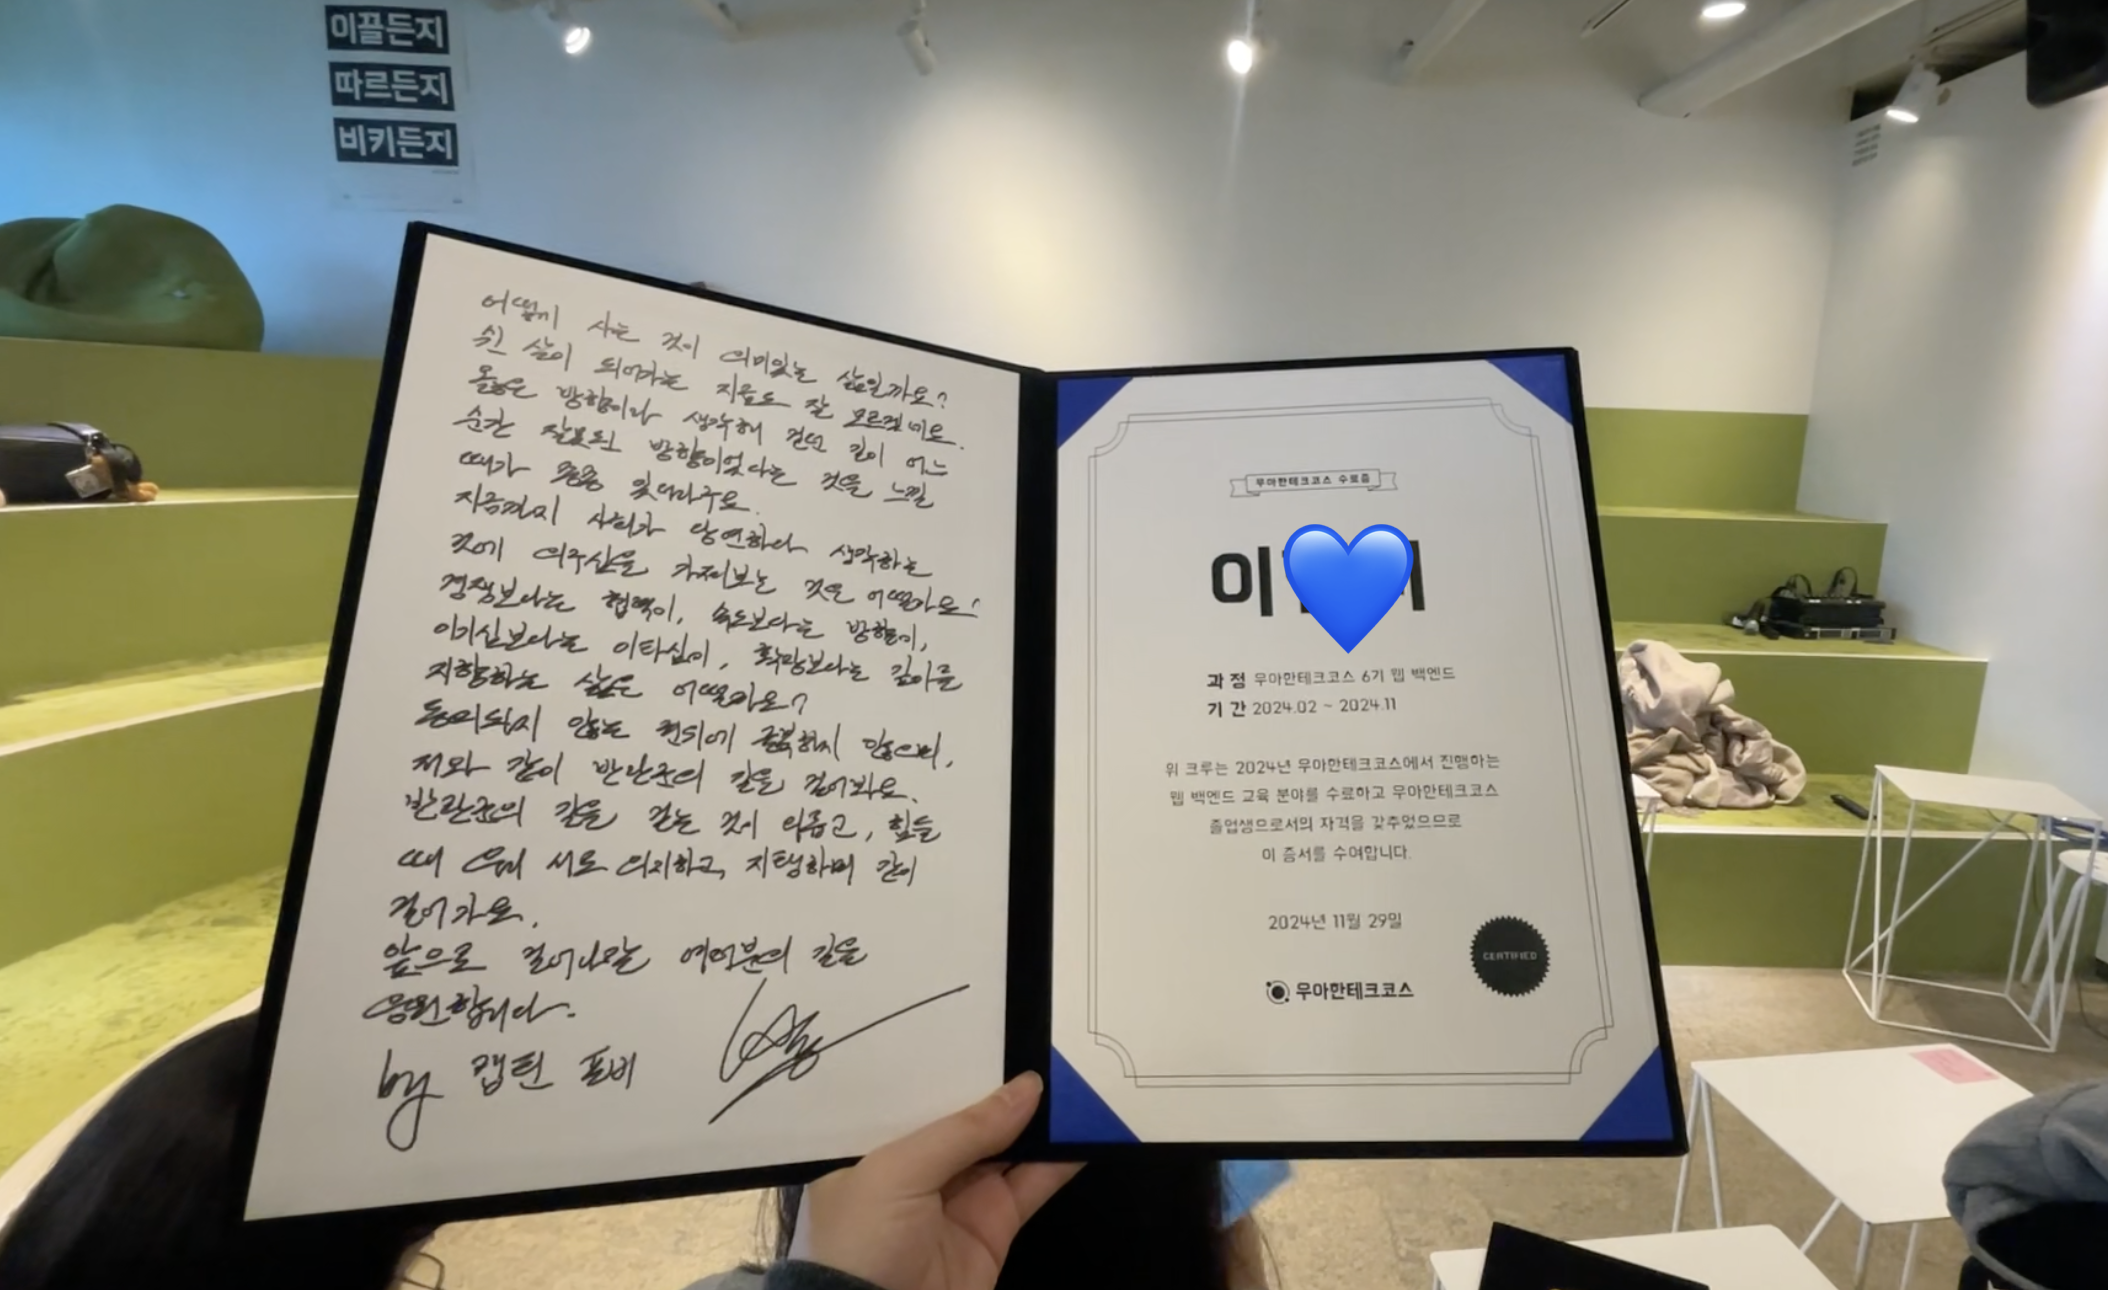 이끌든지
따르든지
비키든지
어떻게 사는 것이 의미있는 삶일까요?
쉰 살이 되어가는 지금도 잘 모르겠네요.
옳은 방향이라 생각해 걷던 길이 어느
순간 잘못된 방향이었다는 것을 느낄
때가 종종 있더라구요.
지금까지 사회가 당연하다 생각하는
것에 의구심을 가져보는 것은 어떨까요?
경쟁보다는 협력이, 속도보다는 방향이,
이기심보다는 이타심이, 확장보다는 깊이를
지향하는 삶은 어떨까요?
동의되지 않는 권위에 굴복하지 않으며,
저와 같이 반란군의 길을 걸어봐요.
반란군의 길을 걷는 것이 외롭고, 힘들
때 우리 서로 의지하고, 지탱하며 같이
걸어가요.
앞으로 걸어나갈 여러분의 길을
응원합니다.
by 캡틴 포비
우아한테크코스 수료증
이
과정 우아한테크코스 6기 웹 백엔드
기간 2024.02 ~ 2024.11
위 크루는 2024년 우아한테크코스에서 진행하는
웹 백엔드 교육 분야를 수료하고 우아한테크코스
졸업생으로서의 자격을 갖추었으므로
이 증서를 수여합니다.
2024년 11월 29일
CERTIFIED
우아한테크코스